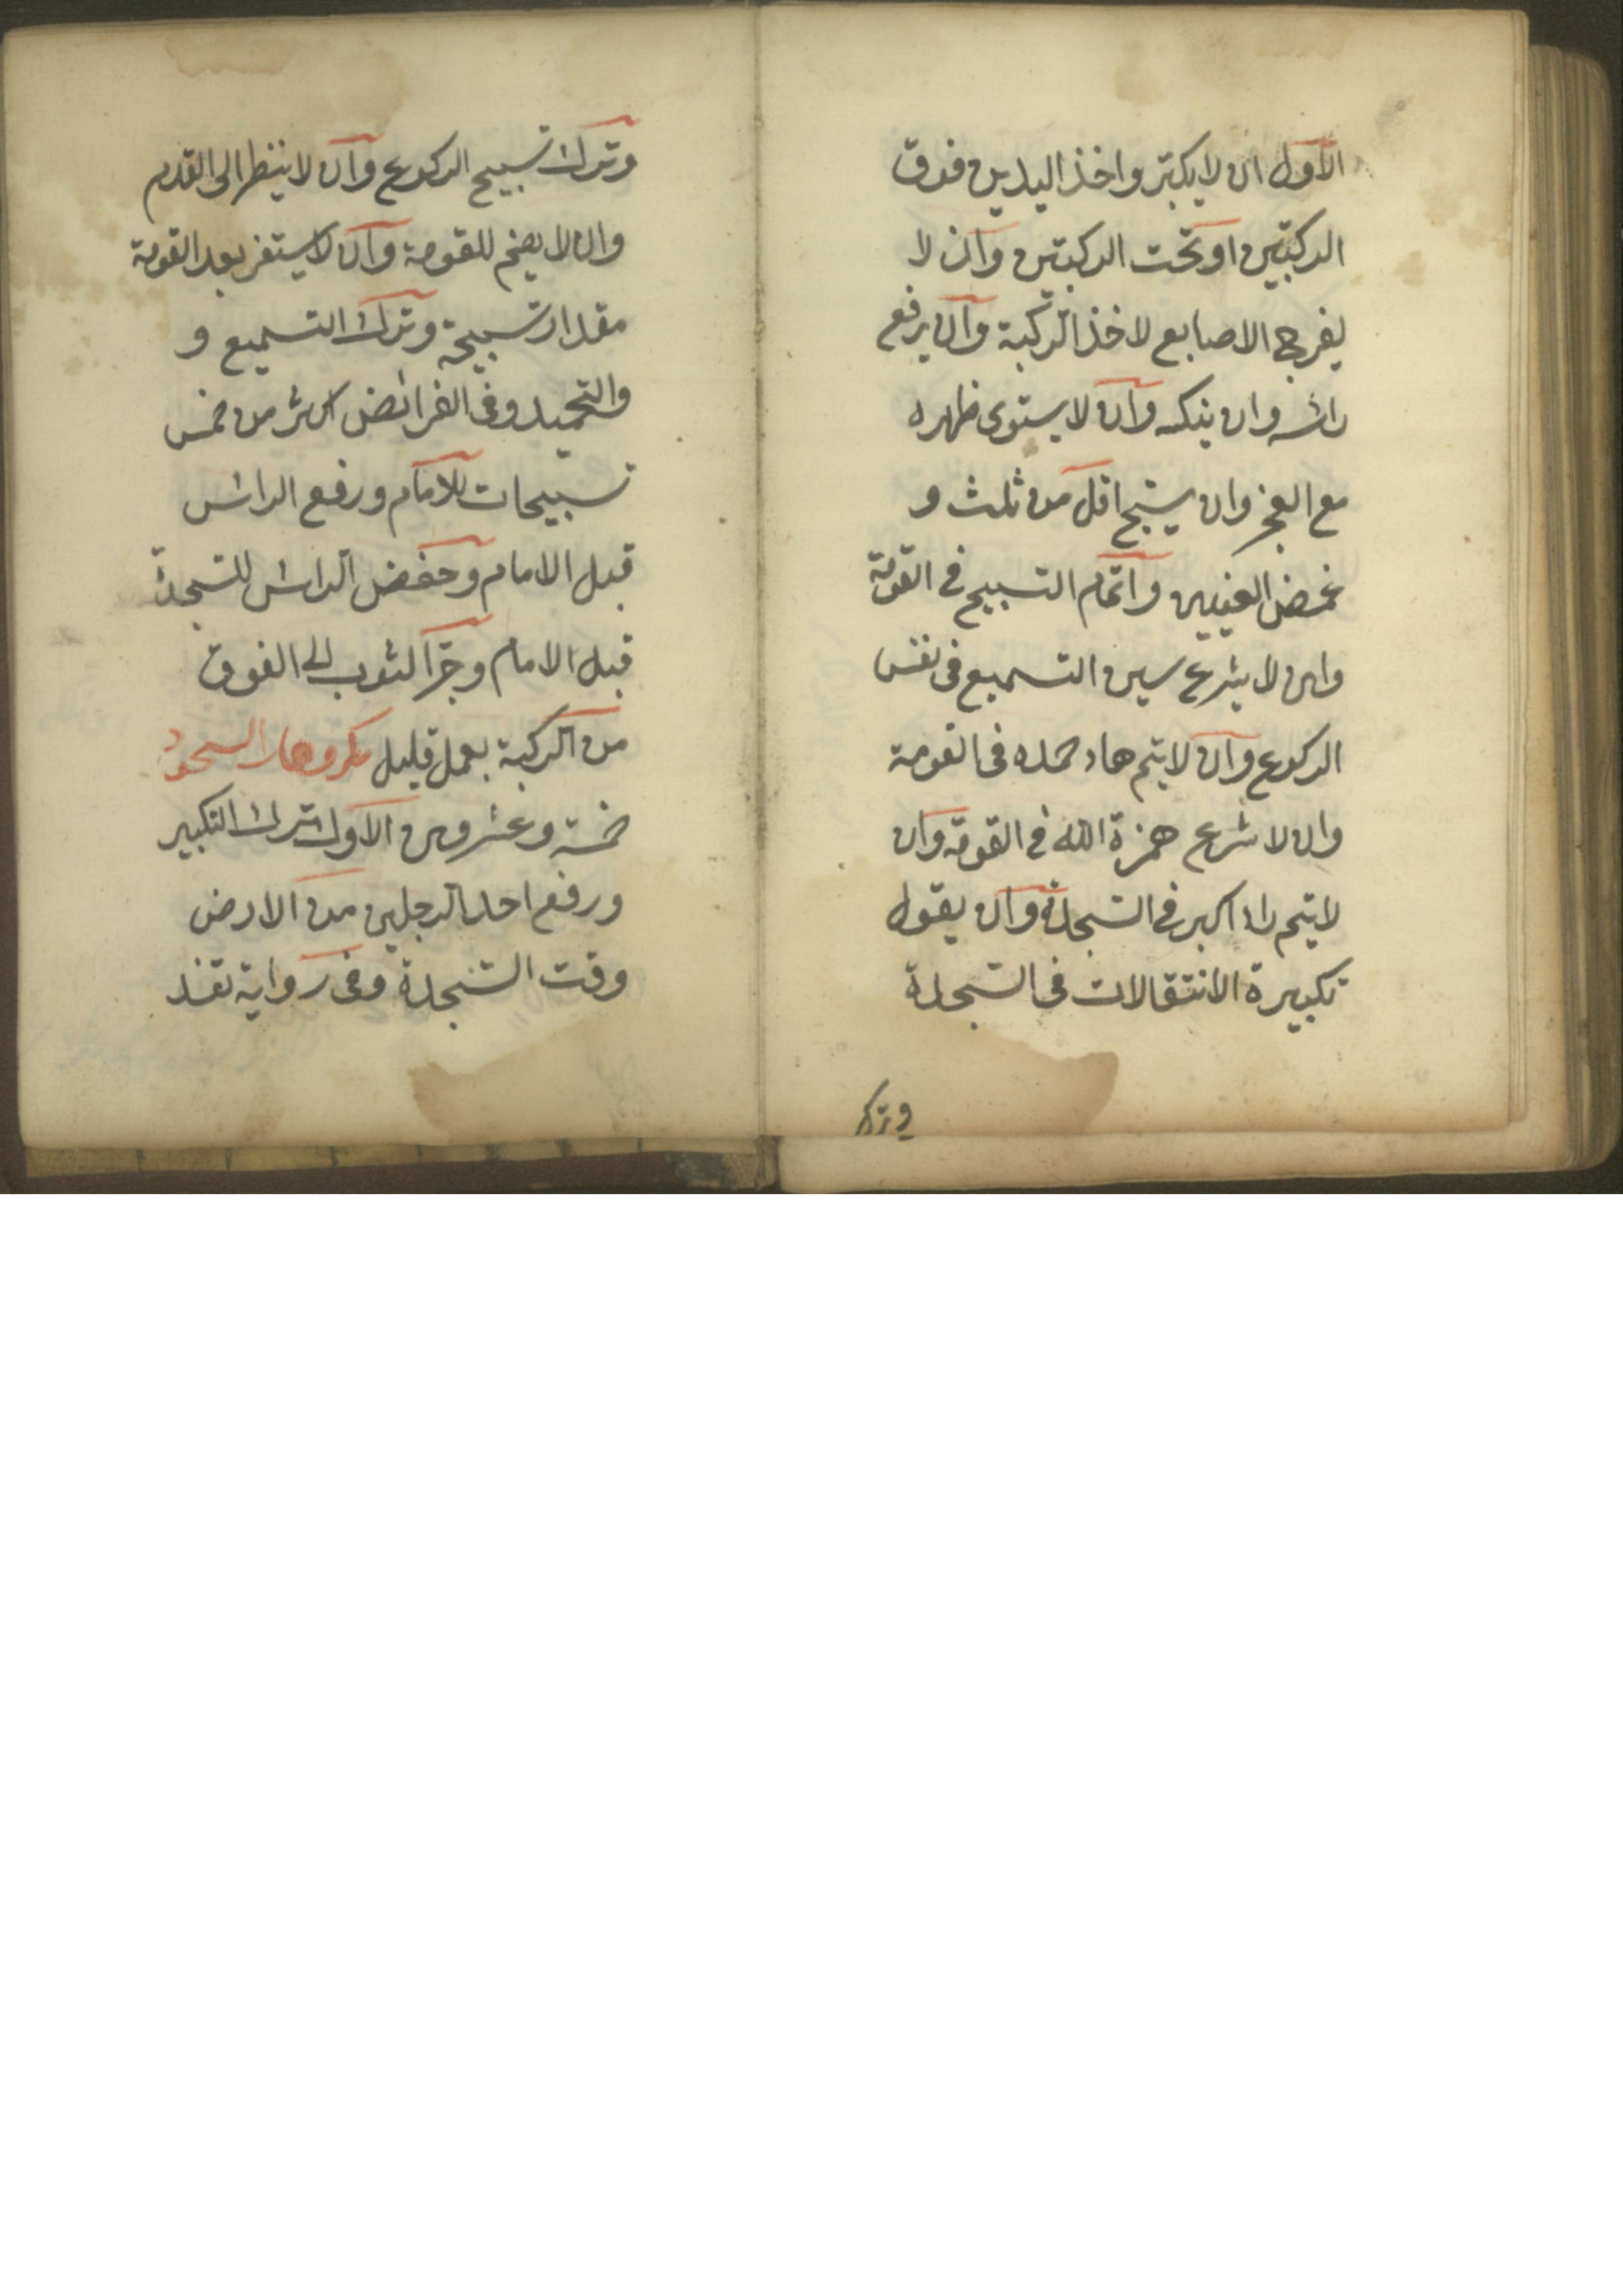 الاول ان لا يكبّر واخذ اليدين فوق
الركبتين او تحت الركبتين وان لا
يفرج الاصابع لاخذ الركبة وان يرفع
راسه وان ينكسه وان لا يستوى ظهره
مع العجز وان يسبح اقل من ثلث و
غمض العينين واتمام التسبيح في القومة
وان لا يشرع سين التسميع فى نفس
الركوع وان لا يتم هاء حمده فى القومة
وان لا شرع همزة الله في القومة وان
لا يتم راء اكبر في السجدة وان يقول
تكبيرة الانتقالات فى السجدة
وترك
وترك تسبيح الركوع وان لا ينظر الى القدم
وان لا يضم للقومة وان لا يستقر بعد القومة
مقدار تسبيحة وترك التسميع و
والتحميد وفى الفرائض اكثر من خمس
تسبيحات للامام ورفع الراس
قبل الامام وخفض الراس للسجدة
قبل الامام وجر الثوب الى الفوق
من الركبة بعمل قليل مكروهات السجود
خمسة وعشرون الاول ترك التكبير
ورفع احد الرجلين من الارض
وقت السجدة وفى رواية تفسد